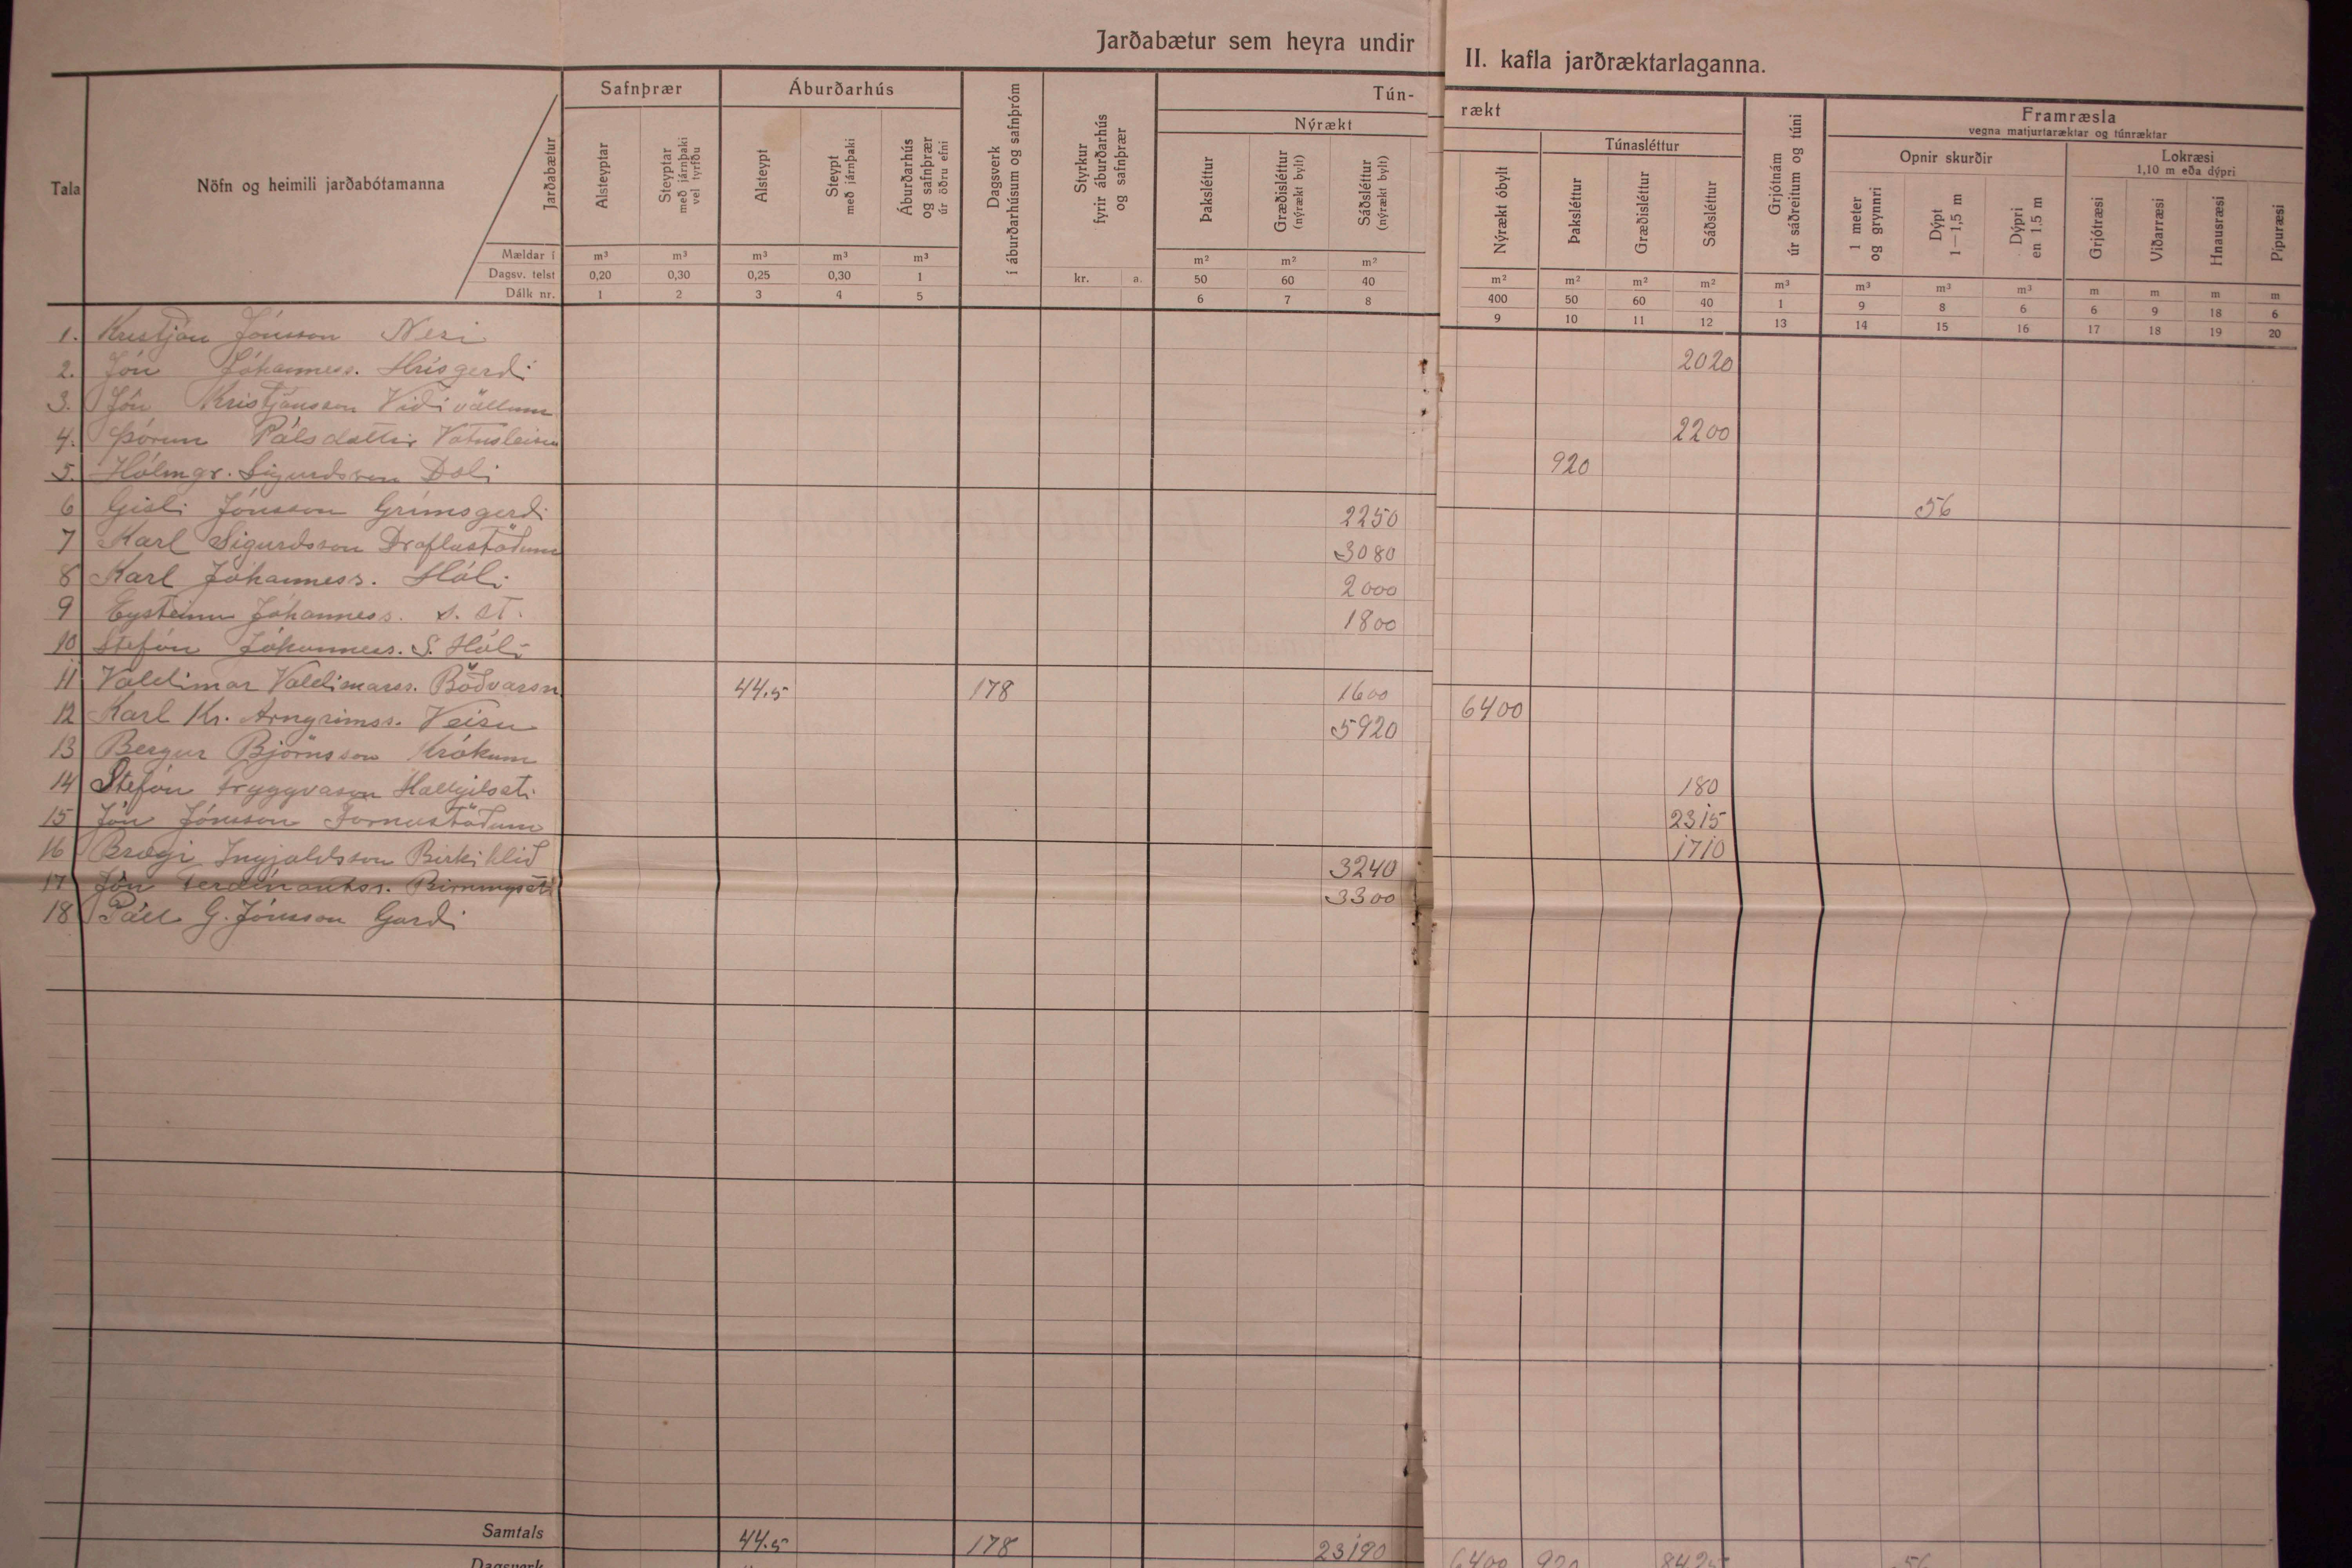 Jarðabætur sem heyra undir II. kafla jarðræktarlaganna.
Tala
Nöfn og heimili jarðabótamanna
Jarðabætur
Mældar í
Dagsv. telst
Dálk nr.
Safnþrær
Alsteyptar
Steyptar með járnþaki vel tyrfðu
Áburðarhús
Alsteypt
Steypt með járnþaki
Áburðarhús og safnþrær úr öðru efni
Dagsverk í áburðarhúsum og safnþróm
Styrkur fyrir áburðarhús og safnþrær
kr. a.
Tún-
Nýrækt
Þaksléttur
Græðisléttur (nýrækt bylt)
Sáðsléttur (nýrækt bylt)
rækt
Nýrækt óbylt
Túnasléttur
Þaksléttur
Græðisléttur
Sáðsléttur
Grjótnám úr sáðreitum og túni
Framræsla
vegna matjurtaræktar og túnræktar
Opnir skurðir
1 meter og grynnri
Dýpt 1—1,5 m
Dýpri en 1.5 m
Lokræsi
1,10 m eða dýpri
Grjótræsi
Viðarræsi
Hnausræsi
Pípuræsi
m³ m³ m³ m³ m³ m² m² m² m² m² m² m² m³ m³ m³ m³ m m m m
0,20 0,30 0,25 0,30 1 50 60 40 400 50 60 40 1 9 8 6 6 9 18 6
1 2 3 4 5 6 7 8 9 10 11 12 13 14 15 16 17 18 19 20
1. Kristján Jónsson Nesi 2020
2. Jón Jóhanness. Hrísgerði
3. Jón Kristjánsson Víðivöllum 2200
4. Þórunn Pálsdóttir 920
5. Hólmgr. Sigurdsson Dali
6 Gísli Jónsson Grímsgerdi 2250 56
7 Karl Sigurdsson Draflastöðum 3080
8 Karl Jóhanness. Hóli 2000
9 Eysteinn Jóhanness. s. st. 1800
10 Stefán Jóhanness. S. Hóli
11 Valdimar Valdimarss. Böðvarsn. 44.5 178 1600 6400
12 Karl Kr. Arngrímss. Veisu 5920
13 Bergur Björnsson Krókum 180
14 Stefán Tryggvason Hallgilsst. 2315
15 Jón Jónsson Fornastöðum 1710
16 Bragi Ingjaldsson Birkihlíð 3240
17 Jón Ferdínantss. Birningsst. 3300
18 Páll G. Jónsson Gardi
Samtals 44.5 178 23190 6400 920 8425 56
Dagsverk